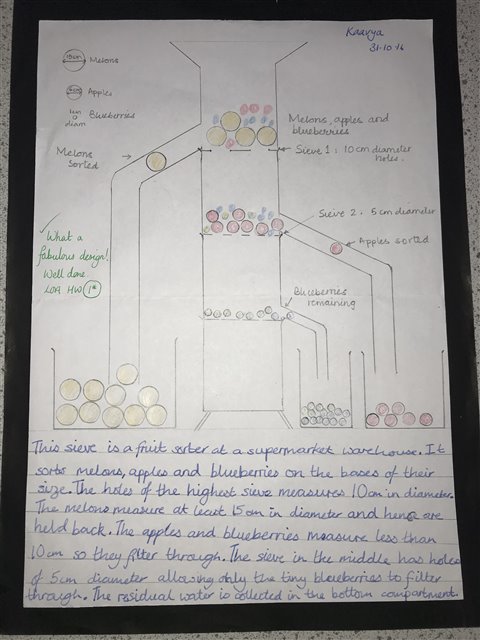 Kaavya
31-10-16
15cm Melons
Apples
1cm
diam
Blueberries
Melons, apples and
blueberries
Melons
sorted
Sieve 1 : 10 cm diameter
holes.
Sieve 2 : 5 cm diameter
Apples sorted
✓ What a
fabulous design!
Well done.
HW 1*
Blueberries
remaining
This sieve is a fruit sorter at a supermarket warehouse. It
sorts melons, apples and blueberries on the bases of their
size. The holes of the highest sieve measures 10cm in diameter.
The melons measure at least 15cm in diameter and hence are
held back. The apples and blueberries measure less than
10cm so they filter through. The sieve in the middle has holes
of 5cm diameter allowing only the tiny blueberries to filter
through. The residual water is collected in the bottom compartment.